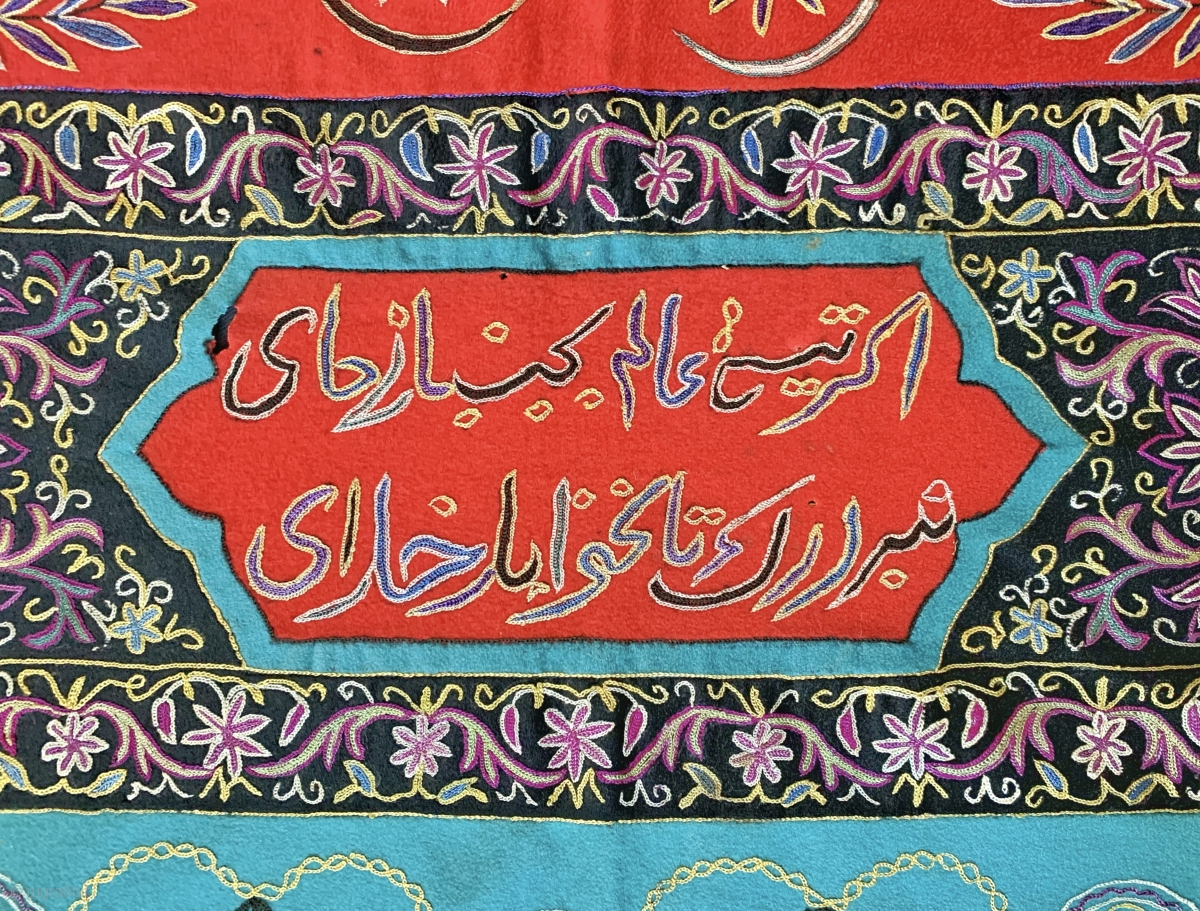 اکر تیغ عالم بجنباز جای
نبرد رک تا نخواباد خدای